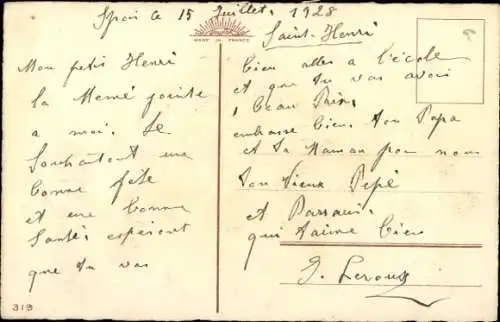 Spoi ce 15 Juillet 1928
MADE IN FRANCE
Saint-Henri
Mon petit Henri
la Memé jointe
a moi. Te
Souhaitont une
bonne fête
et une bonne
Santés esperent
que tu vas
bien alles a l'école
et que tu vas avoir
1 beau Prix
embrasse bien ton Papa
et ta Maman pour nous
ton vieux Pépé
et Parrain.
qui t'aime bien
J. Leroux
319